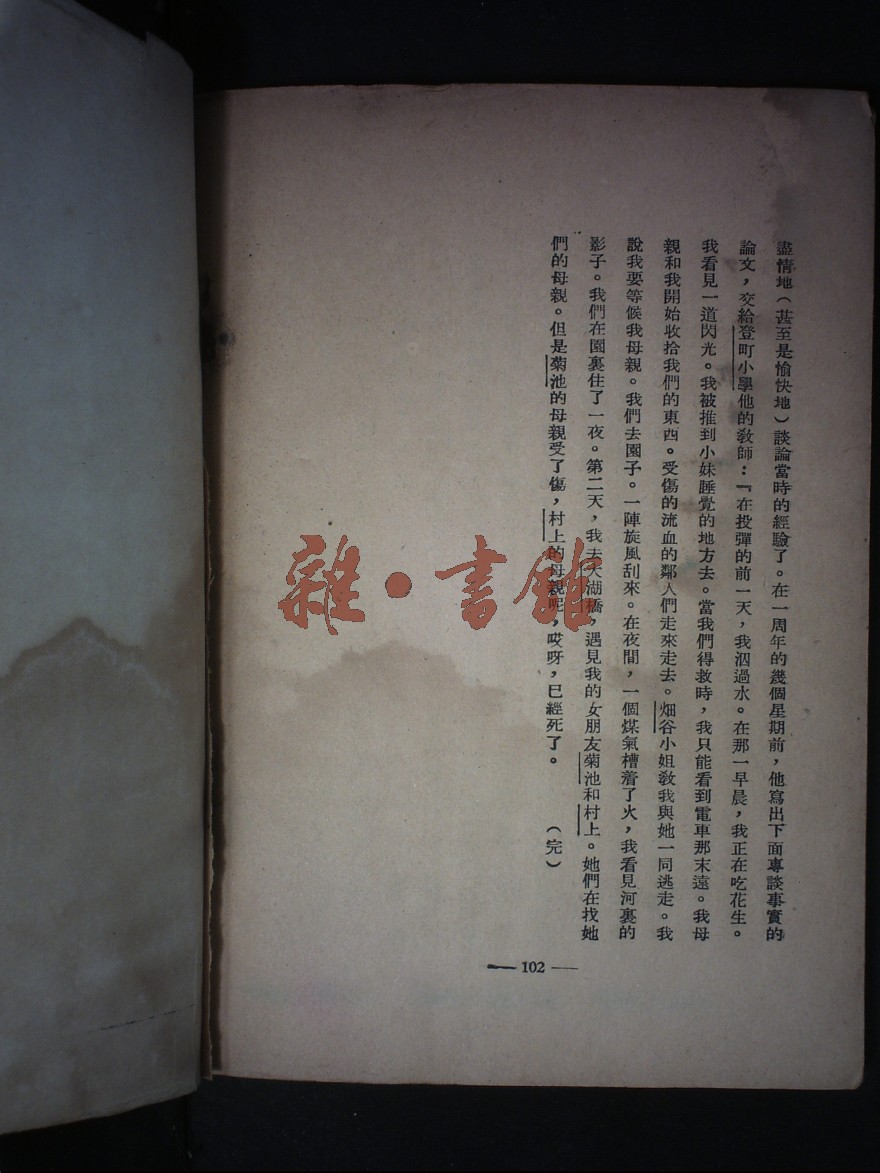 盡情地(甚至是愉快地)談論當時的經驗了。在一周年的幾個星期前,他寫出下面專談事實的
論文,交給登町小學他的敎師:『在投彈的前一天,我泅過水。在那一早晨,我正在吃花生。
我看見一道閃光。我被推到小妹睡覺的地方去。當我們得救時,我只能看到電車那末遠。我母
親和我開始收拾我們的東西。受傷的流血的鄰人們走來走去。畑谷小姐敎我與她一同逃走。我
說我要等候我母親。我們去園子。一陣旋風刮來。在夜間,一個煤氣槽着了火,我看見河裏的
影子。我們在園裏住了一夜。第二天,我去大湖橋,遇見我的女朋友菊池和村上。她們在找她
們的母親。但是菊池的母親受了傷,村上的母親呢,哎呀,已經死了。 (完)
— 102 —
雜·書館